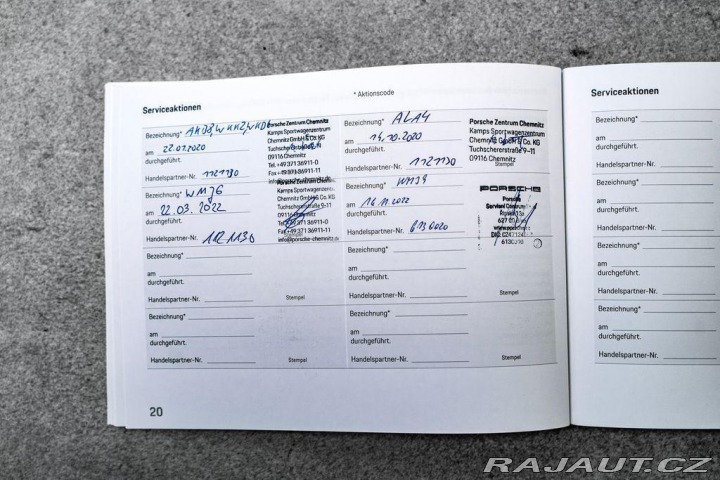 * Aktionscode
Serviceaktionen
Bezeichnung*
am 22.07.2020
durchgeführt.
Handelspartner-Nr. 1121130
Porsche Zentrum Chemnitz
Kamps Sportwagenzentrum
Chemnitz GmbH & Co. KG
Tuchschererstraße 9-11
09116 Chemnitz
Tel.+49 371 36911-0
Fax +49 371 36911-11
info@porsche-chemnitz.de
Bezeichnung* ALA4
am 14.10.2020
durchgeführt.
Handelspartner-Nr. 1121130
Porsche Zentrum Chemnitz
Kamps Sportwagenzentrum
Chemnitz GmbH & Co. KG
Tuchschererstraße 9-11
09116 Chemnitz
Bezeichnung* WMJ6
am 22.03.2022
durchgeführt.
Handelspartner-Nr. 1121130
Porsche Zentrum Chemnitz
Kamps Sportwagenzentrum
Chemnitz GmbH & Co. KG
Tuchschererstraße 9-11
09116 Chemnitz
Tel.+49 371 36911-0
Fax +49 371 36911-11
info@porsche-chemnitz.de
Bezeichnung*
am 16.11.2022
durchgeführt.
Handelspartner-Nr. 6130010
PORSCHE
Porsche
Servisní Centrum
Bezeichnung*
am
durchgeführt.
Handelspartner-Nr.
Stempel
Bezeichnung*
am
durchgeführt.
Handelspartner-Nr.
Stempel
Bezeichnung*
am
durchgeführt.
Handelspartner-Nr.
Stempel
Bezeichnung*
am
durchgeführt.
Handelspartner-Nr.
Stempel
20
Serviceaktionen
Bezeichnung*
am
durchgeführt.
Handelspartner-Nr.
Bezeichnung*
am
durchgeführt.
Handelspartner-Nr.
Bezeichnung*
am
durchgeführt.
Handelspartner-Nr.
Bezeichnung*
am
durchgeführt.
Handelspartner-Nr.
RAJAUT.CZ